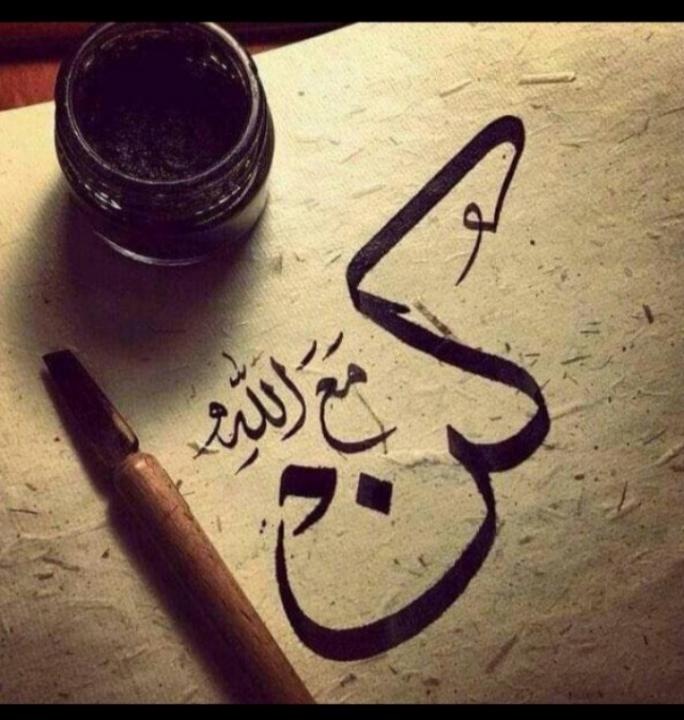 كُن
مَعَ اللّٰهِ